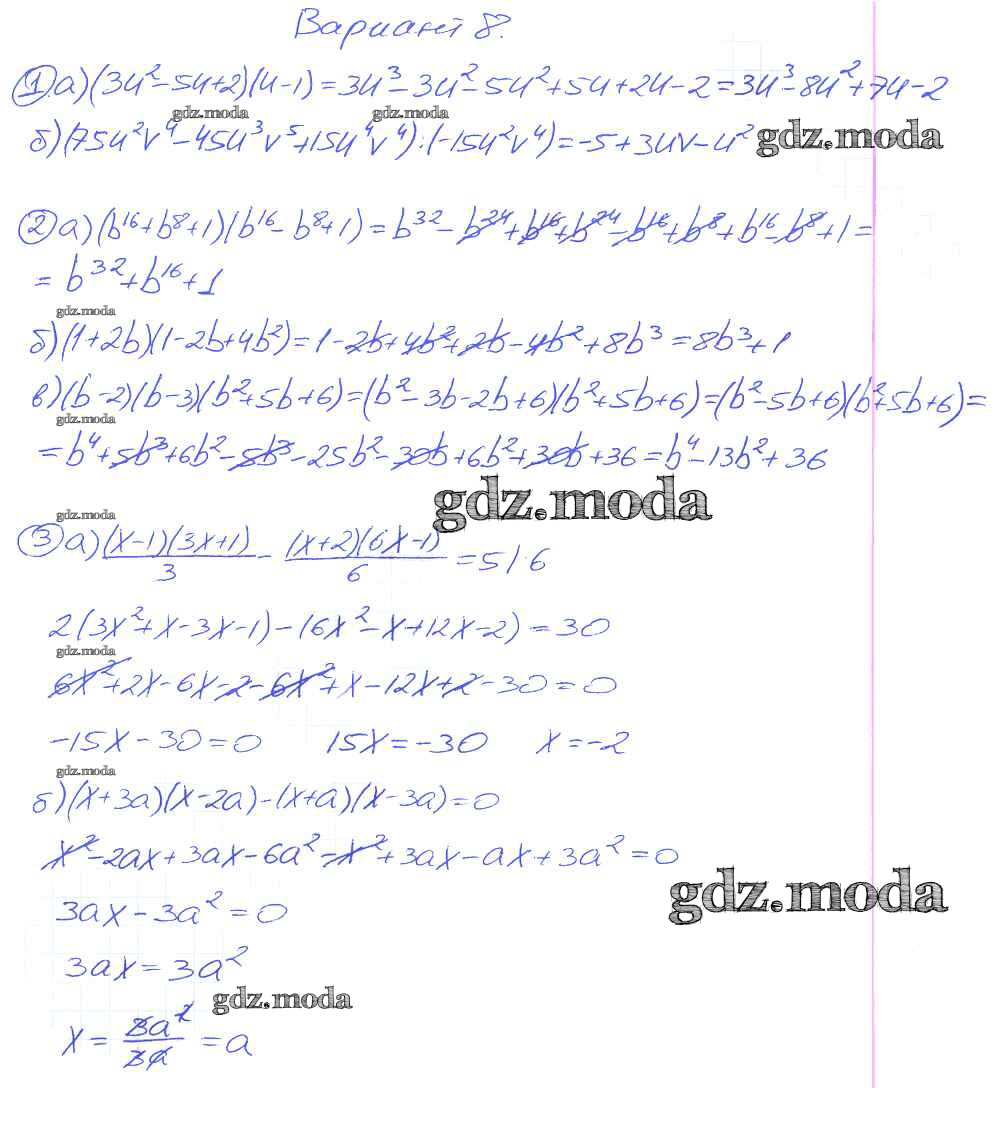 Вариант 8.
① а) (3u² - 5u + 2)(u - 1) = 3u³ - 3u² - 5u² + 5u + 2u - 2 = 3u³ - 8u² + 7u - 2
gdz.moda gdz.moda
б) (75u²v⁴ - 45u³v⁵ + 15u⁴v⁴) : (-15u²v⁴) = -5 + 3uv - u² gdz.moda
② а) (b¹⁶ + b⁸ + 1)(b¹⁶ - b⁸ + 1) = b³² - b²⁴ + b¹⁶ + b²⁴ - b¹⁶ + b⁸ + b¹⁶ - b⁸ + 1 =
= b³² + b¹⁶ + 1
gdz.moda
б) (1 + 2b)(1 - 2b + 4b²) = 1 - 2b + 4b² + 2b - 4b² + 8b³ = 8b³ + 1
в) (b - 2)(b - 3)(b² + 5b + 6) = (b² - 3b - 2b + 6)(b² + 5b + 6) = (b² - 5b + 6)(b² + 5b + 6) =
gdz.moda
= b⁴ + 5b³ + 6b² - 5b³ - 25b² - 30b + 6b² + 30b + 36 = b⁴ - 13b² + 36
gdz.moda
gdz.moda
③ а) (x-1)(3x+1)/3 - (x+2)(6x-1)/6 = 5 | · 6
2(3x² + x - 3x - 1) - (6x² - x + 12x - 2) = 30
gdz.moda
6x² + 2x - 6x - 2 - 6x² + x - 12x + 2 - 30 = 0
-15x - 30 = 0 15x = -30 x = -2
gdz.moda
б) (x + 3a)(x - 2a) - (x + a)(x - 3a) = 0
x² - 2ax + 3ax - 6a² - x² + 3ax - ax + 3a² = 0
gdz.moda
3ax - 3a² = 0
3ax = 3a²
gdz.moda
x = 3a²/3a = a